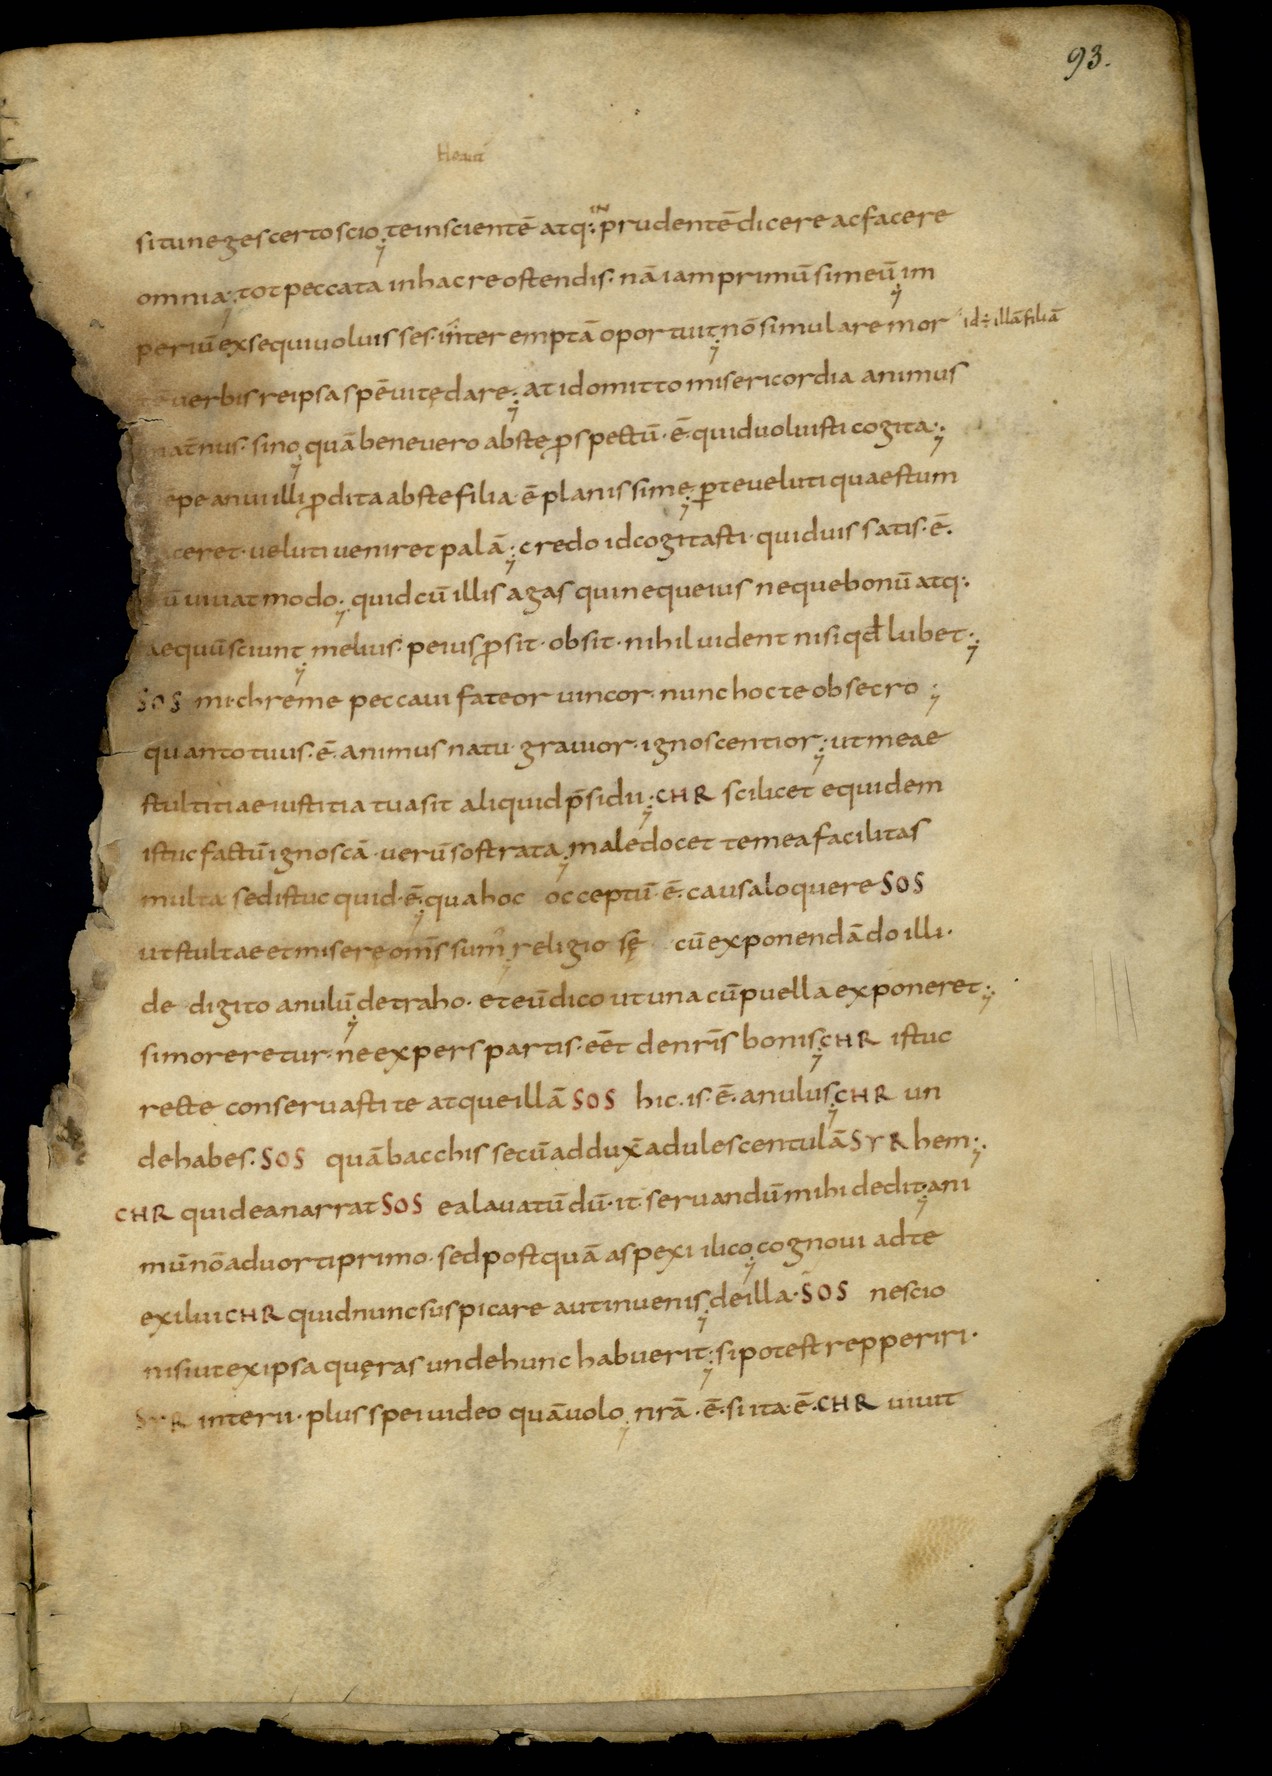 93.
Heauт
situ neges certo scio; te inscientē atq; INprudentē dicere ac facere
omnia; tot peccata in hac re ostendis. nā iam primū si meū; im
periū exsequi uoluisses. interemptā oportuit; nō simulare mor id ÷ illā filiā
uerbis reipsa spē uitę dare; at id omitto misericordia animus
mat̄nus. sino; quā bene uero abs te ꝓspectū. ē. quid uoluisti cogita;
ēpe anui illi ꝓdita abs te filia. ē planissime; ꝑ te uel uti quaestum
ceret. uel uti ueniret palā; credo id cogitasti. quiduis satis. ē.
ū uiuat modo; quid cū illis agas qui neque ius neque bonū atq;
aequū sciunt; melius. peius ꝓsit. obsit. nihil uident nisi qđ lubet;
SOS mi. chreme peccaui fateor uincor. nunc hoc te obsecro;
quanto tuus. ē. animus natu. grauior. ignoscentior; ut meae
stultitiae iustitia tua sit aliquid p̄sidii; CHR scilicet equidem
istuc factū ignoscā. uerū sostrata; male docet te mea facilitas
multa. sed istuc quid. ē; qua hoc occeptū. ē. causa loquere SOS
ut stultae et misere om̄s sum᷒; religiosę cū exponendā do illi.
de digito anulū; detraho. et eū dico ut una cū puella exponeret;
si moreretur. ne expers partis. eēt de nr̄is bonis; CHR istuc
recte conseruasti te atque illā SOS hic. is. ē. anulus; CHR un
de habes. SOS quā bacchis secū addux̄ adulescentulā SYR hem;
CHR quid ea narrat SOS ea lauatū dū. it. seruandū mihi dedit; ani
mū nō aduorti primo. sed postquā aspexi ilico; cognoui ad te
exilui CHR quid nunc suspicare aut inuenis; de illa. SOS nescio
nisi ut ex ipsa quęras unde hunc habuerit; si potest repperiri.
SYR interii. plus spei uideo quā uolo; nr̄ā. ē. si ita. ē. CHR uiuit